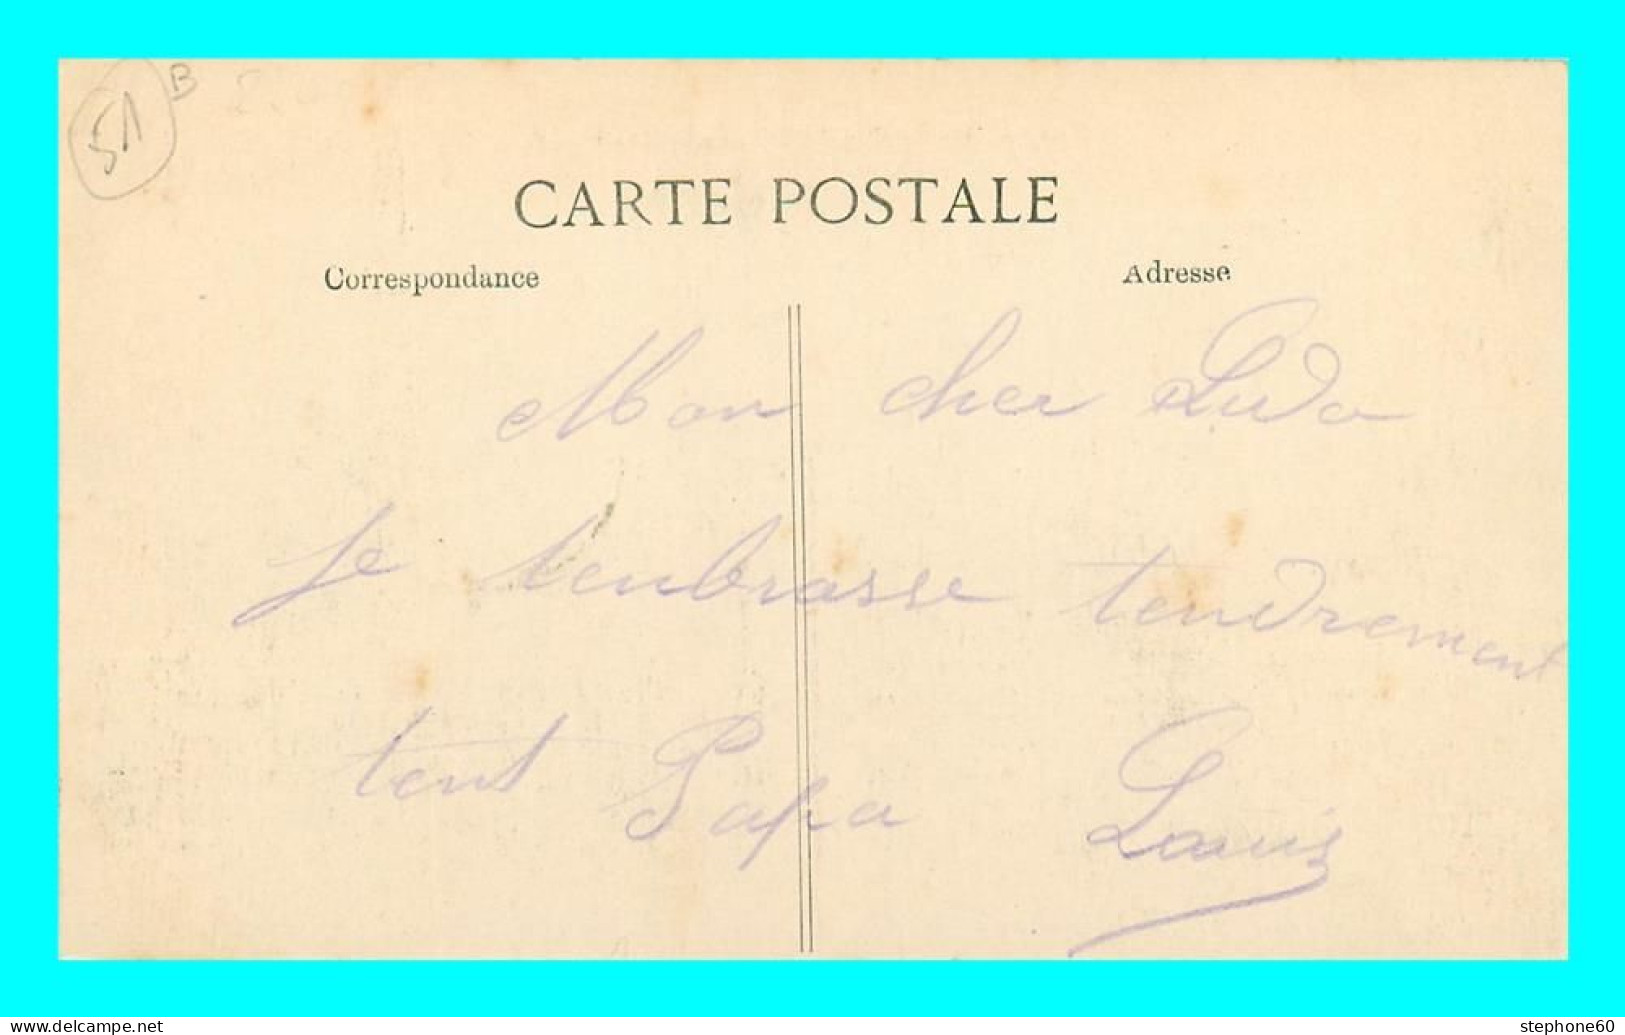 51 B
CARTE POSTALE
Correspondance Adresse
Mon cher Ludo
Je tenbrasse tendrement
tent Papa Louis
www.delcampe.net stephone60